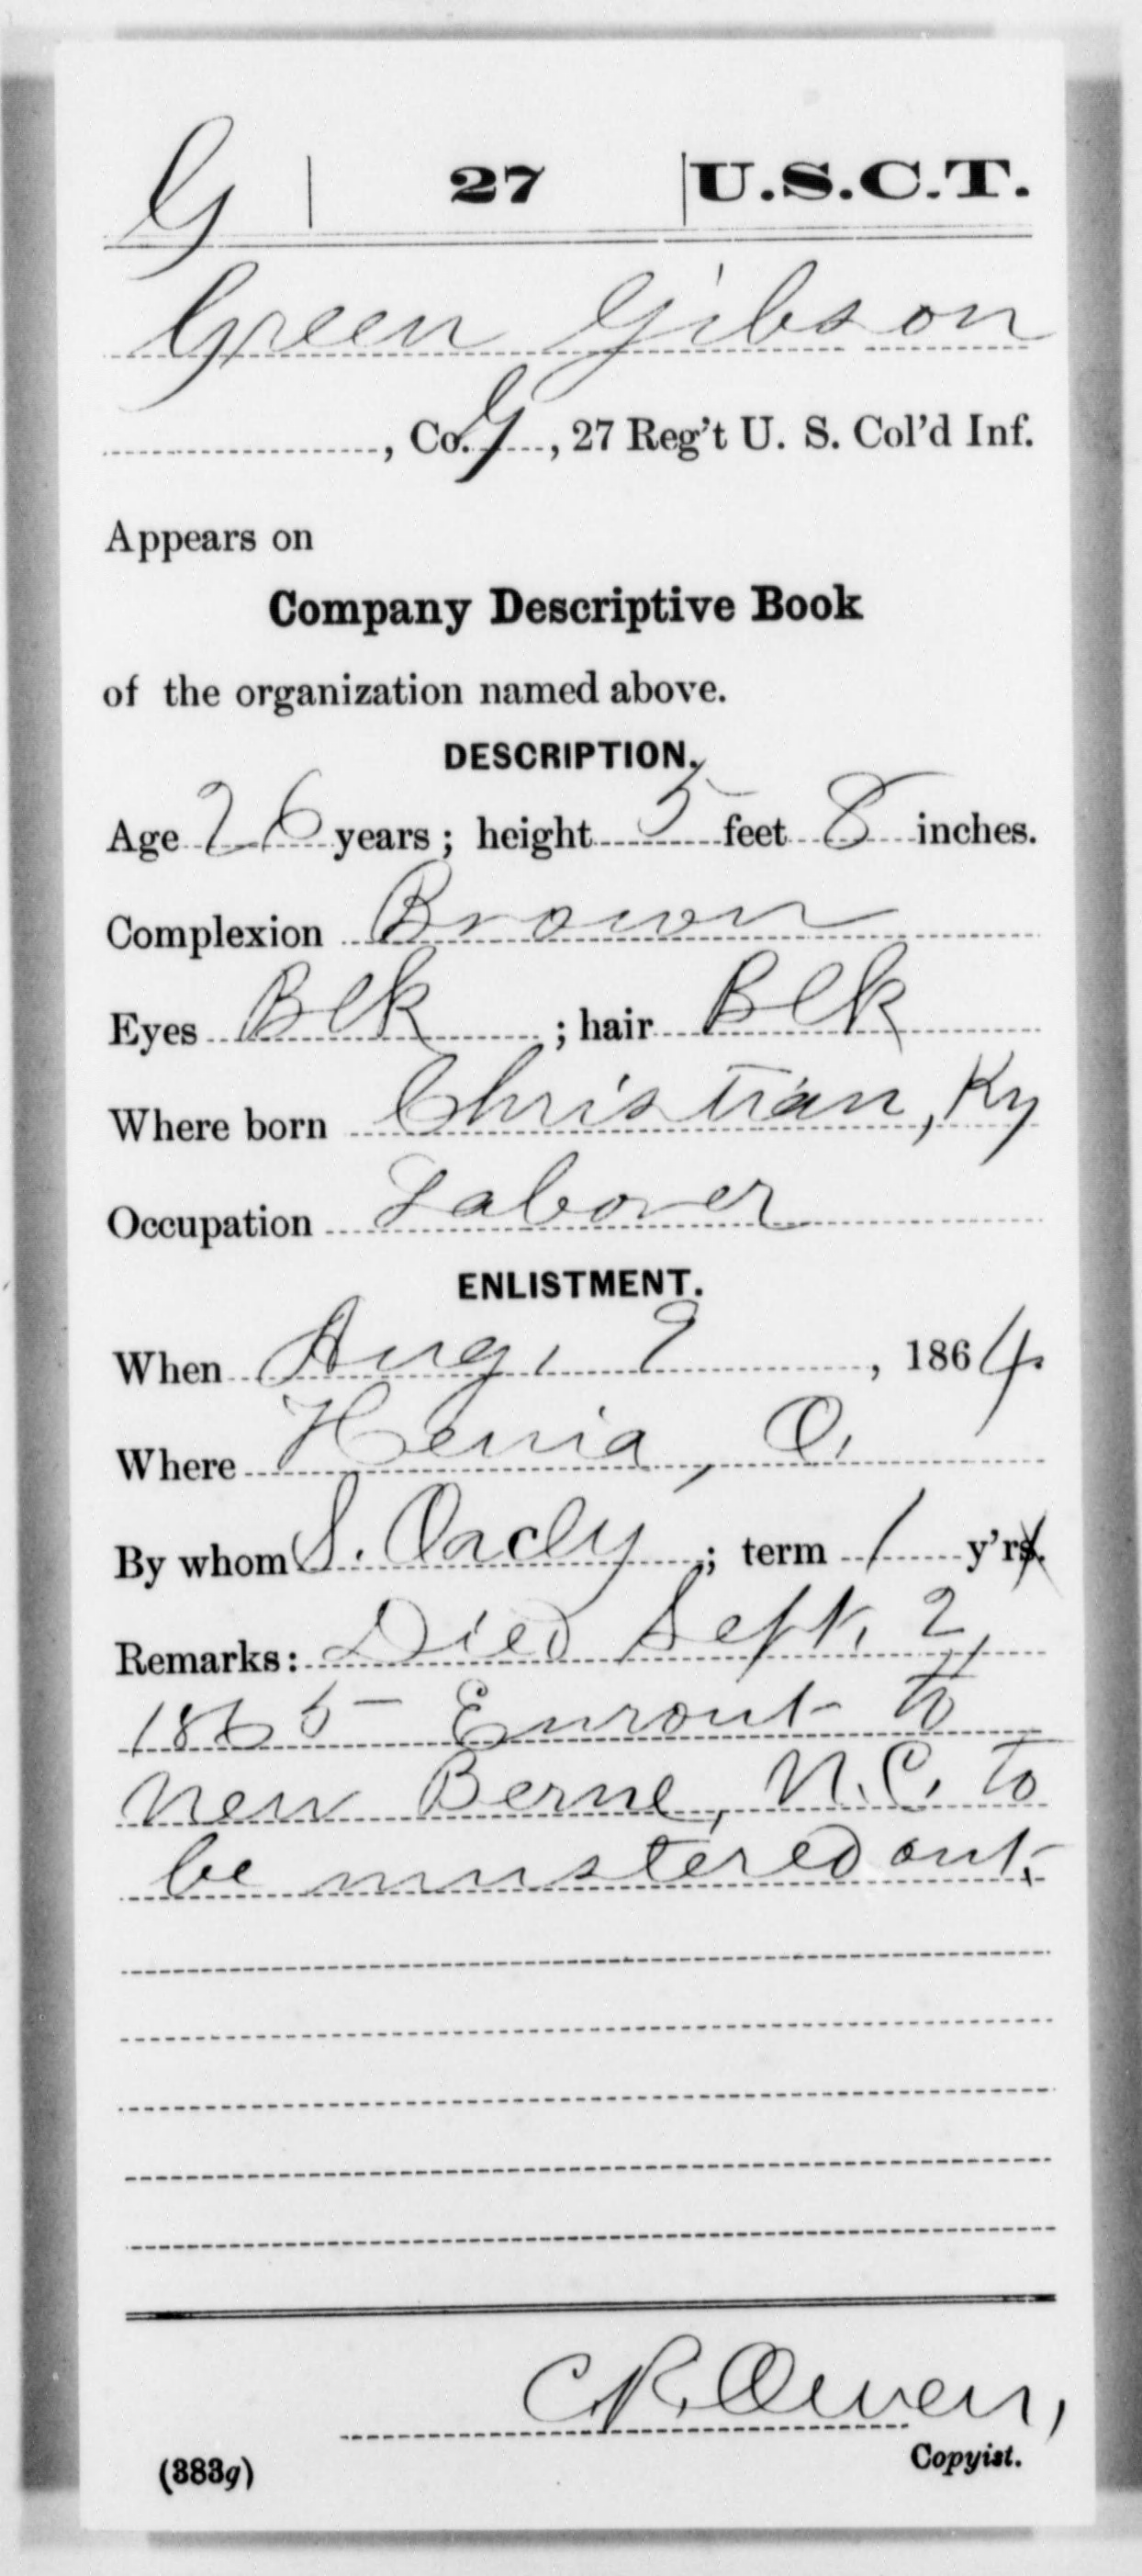 G | 27 | U.S.C.T.
Green Gibson
, Co. G, 27 Reg't U. S. Col'd Inf.
Appears on
Company Descriptive Book
of the organization named above.
DESCRIPTION.
Age 26 years; height 5 feet 8 inches.
Complexion Brown
Eyes Blk ; hair Blk
Where born Christian, Ky
Occupation Laborer
ENLISTMENT.
When Aug. 9, 1864.
Where Xenia, O.
By whom S. ; term 1 y'rs.
Remarks: Died Sept. 2,
1865 Enrout to
New Berne, N.C. to
be mustered out.
C.R. Owen,
Copyist.
(383g)